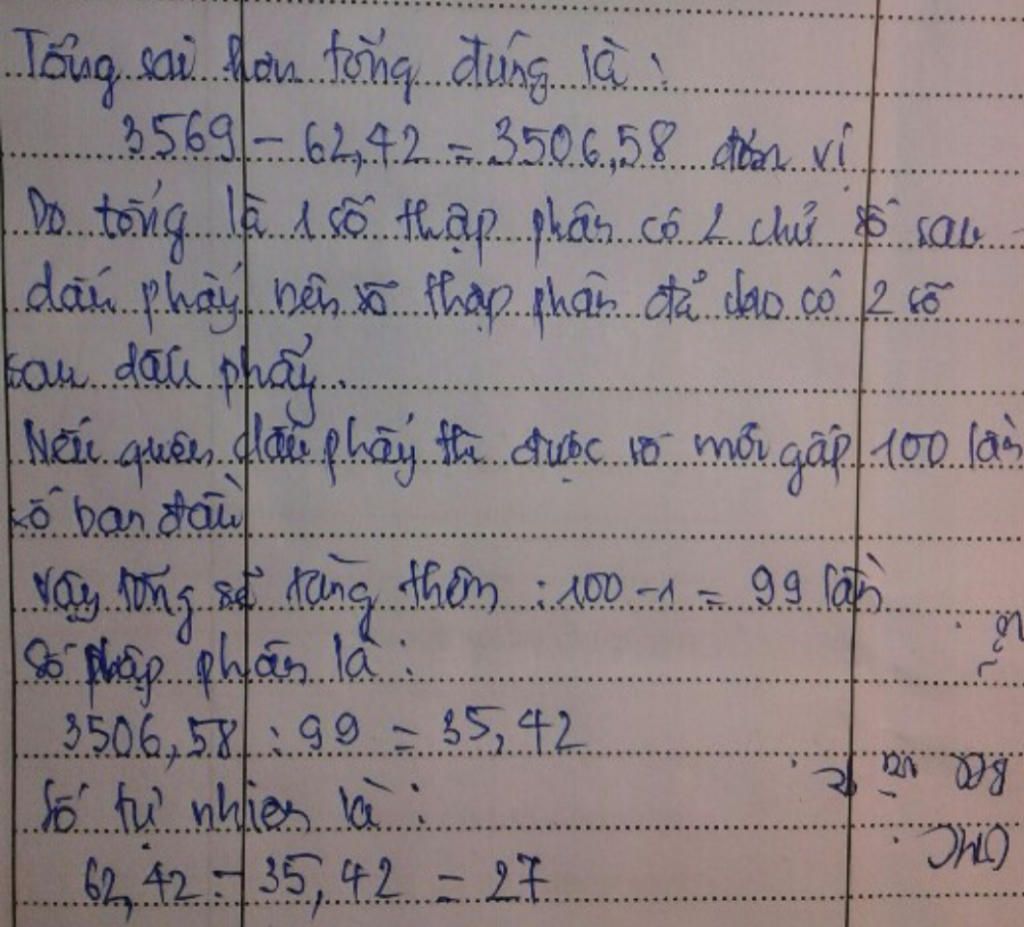 Tổng sai hơn tổng đúng là :
3569 - 62,42 = 3506,58 đơn vị
Do tổng là 1 số thập phân có 2 chữ số sau
dấu phẩy nên số thập phân đã cho có 2 số
sau dấu phẩy.
Nếu quên dấu phẩy thì được số mới gấp 100 lần
số ban đầu
Vậy tổng sẽ tăng thêm : 100 - 1 = 99 lần
Số thập phân là :
3506,58 : 99 = 35,42
Số tự nhiên là :
62,42 - 35,42 = 27